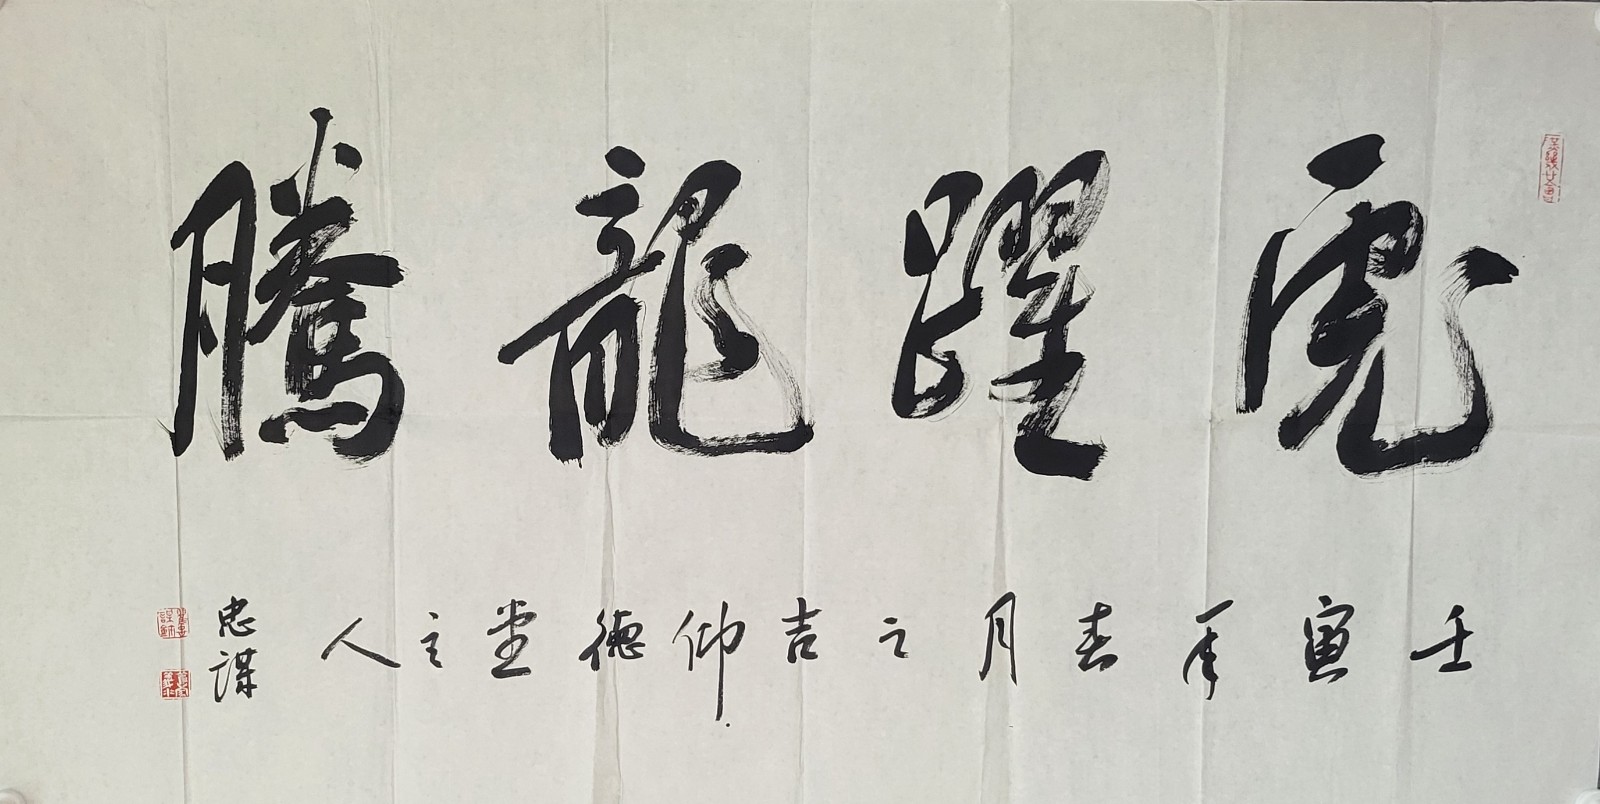 虎躍龍騰
壬寅年春月之吉仰德堂主人
忠謀